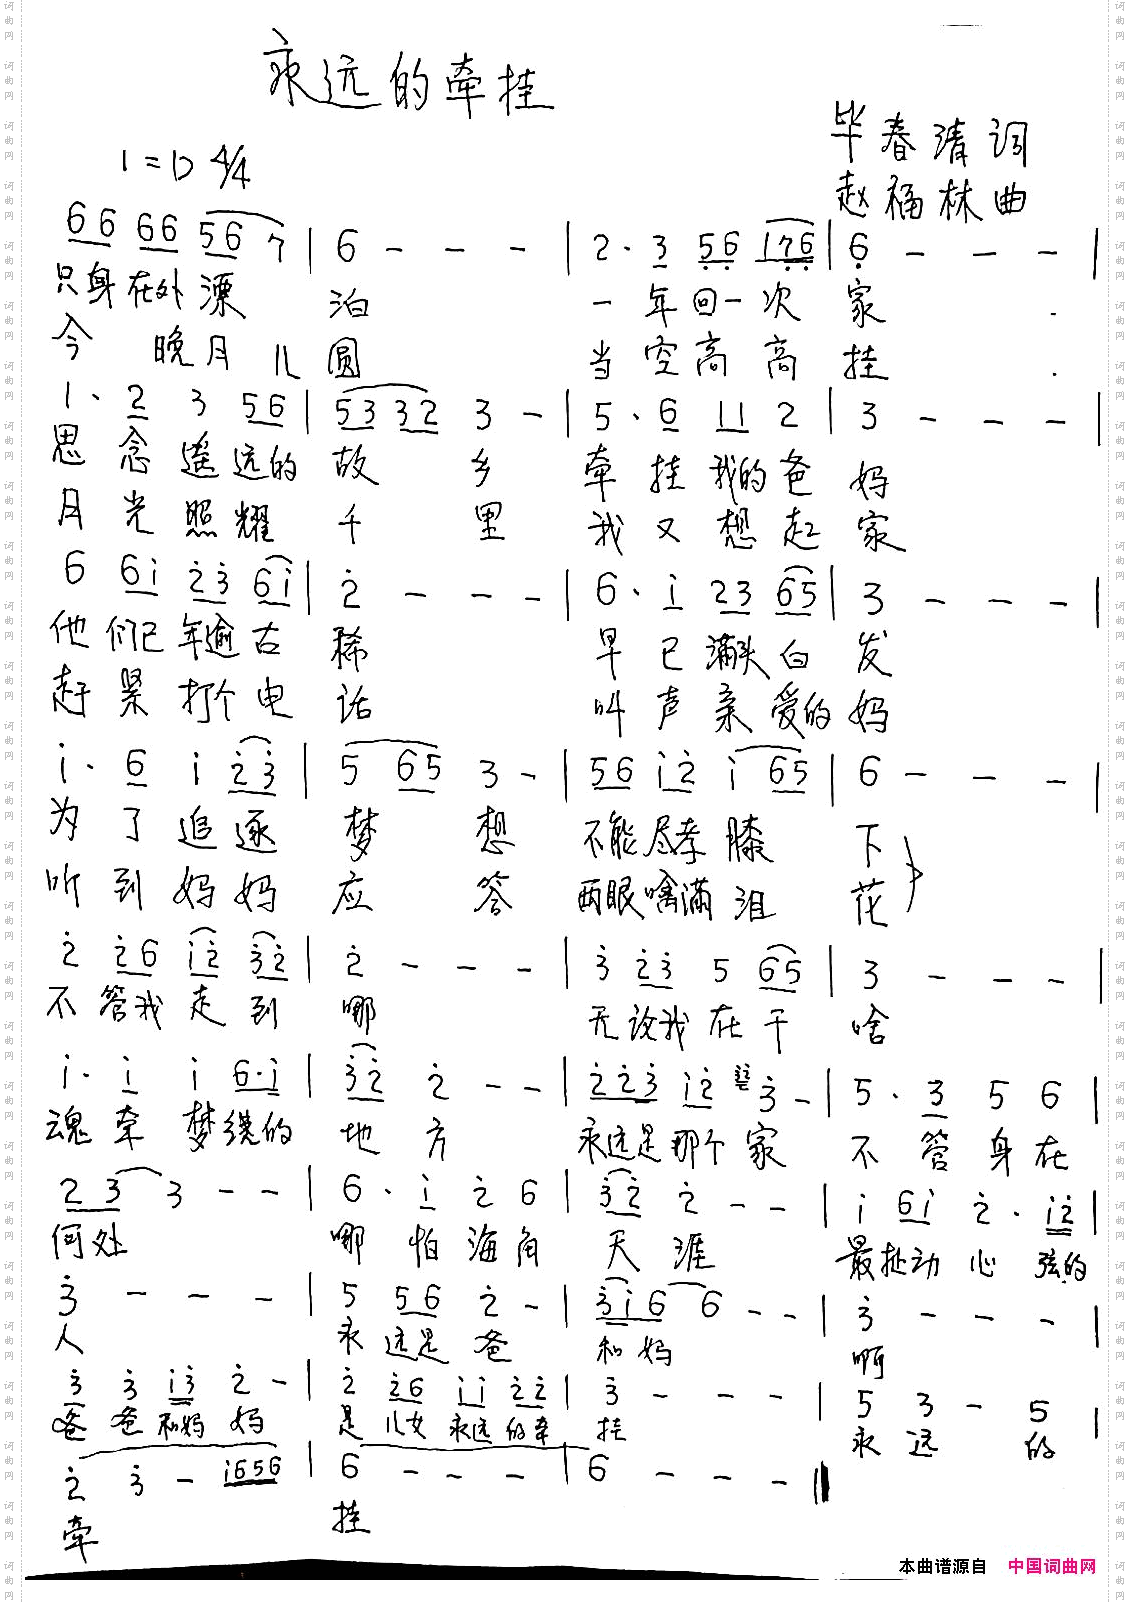 永远的牵挂
毕春清词
1=D 4/4
赵福林曲
66 66 56 7 | 6 - - - | 2· 3 56 176 | 6 - - - |
只身在外漂 泊 一年回一次 家
今 晚月儿 圆 当空高高 挂
1· 2 3 56 | 53 32 3 - | 5· 6 11 2 | 3 - - - |
思念遥远的 故 乡 牵挂我的爸 妈
月光照耀 千 里 我又想起 家
6 6i 23 6i | 2 - - - | 6· i 23 65 | 3 - - - |
他们已年逾古 稀 早已满头白 发
赶紧打个电 话 叫声亲爱的 妈
i· 6 i 23 | 5 65 3 - | 56 i2 i 65 | 6 - - - |
为了追逐 梦 想 不能尽孝膝 下
听到妈妈 应 答 两眼噙满泪 花
2 26 i2 32 | 2 - - - | 3 23 5 65 | 3 - - - |
不管我走到 哪 无论我在干 啥
i· i i 6·i | 32 2 - - | 223 i2 3 - | 5· 3 5 6 |
魂牵梦绕的 地 方 永远是那个家 不管身在
23 3 - - | 6· i 2 6 | 32 2 - - | i 6i 2· i2 |
何处 哪怕海角 天 涯 最扯动心弦的
3 - - - | 5 56 2 - | 3i6 6 - - | 3 - - - |
人 永远是爸 和妈 啊
3 3 i3 2 - | 2 26 ii 22 | 3 - - - | 5 3 - 5 |
爸爸和妈妈 是儿女永远的牵 挂 永远 的
2 3 - i656 | 6 - - - | 6 - - - ‖
牵 挂
本曲谱源自 中国词曲网